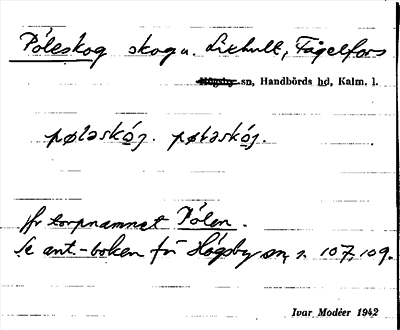 Pöleskog skog u. Lixhult, Fågelfors
Högsby sn, Handbörds hd, Kalm. l.
pøləskóg. pøləskóg.
Jfr torpnamnet Pölen.
Se ant.-boken för Högsby sn, s. 107, 109.
Ivar Modéer 1942